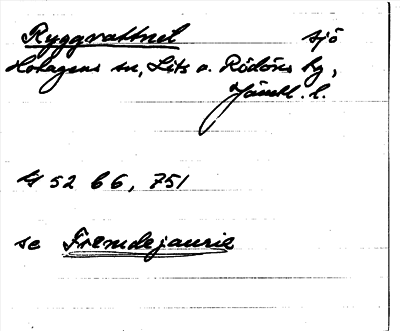 Ryggvattnet sjö
Hotagens sn, Lits o. Rödöns tg,
Jämtl. l.
52 66, 751
se Fremdejaurie